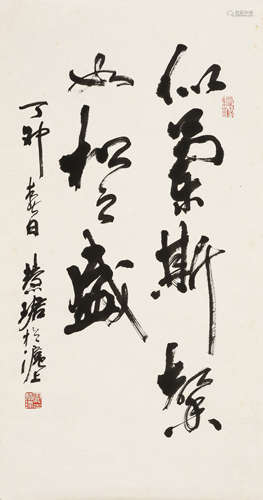 似兰斯馨
如松之盛
丁卯春日慧珺於沪上